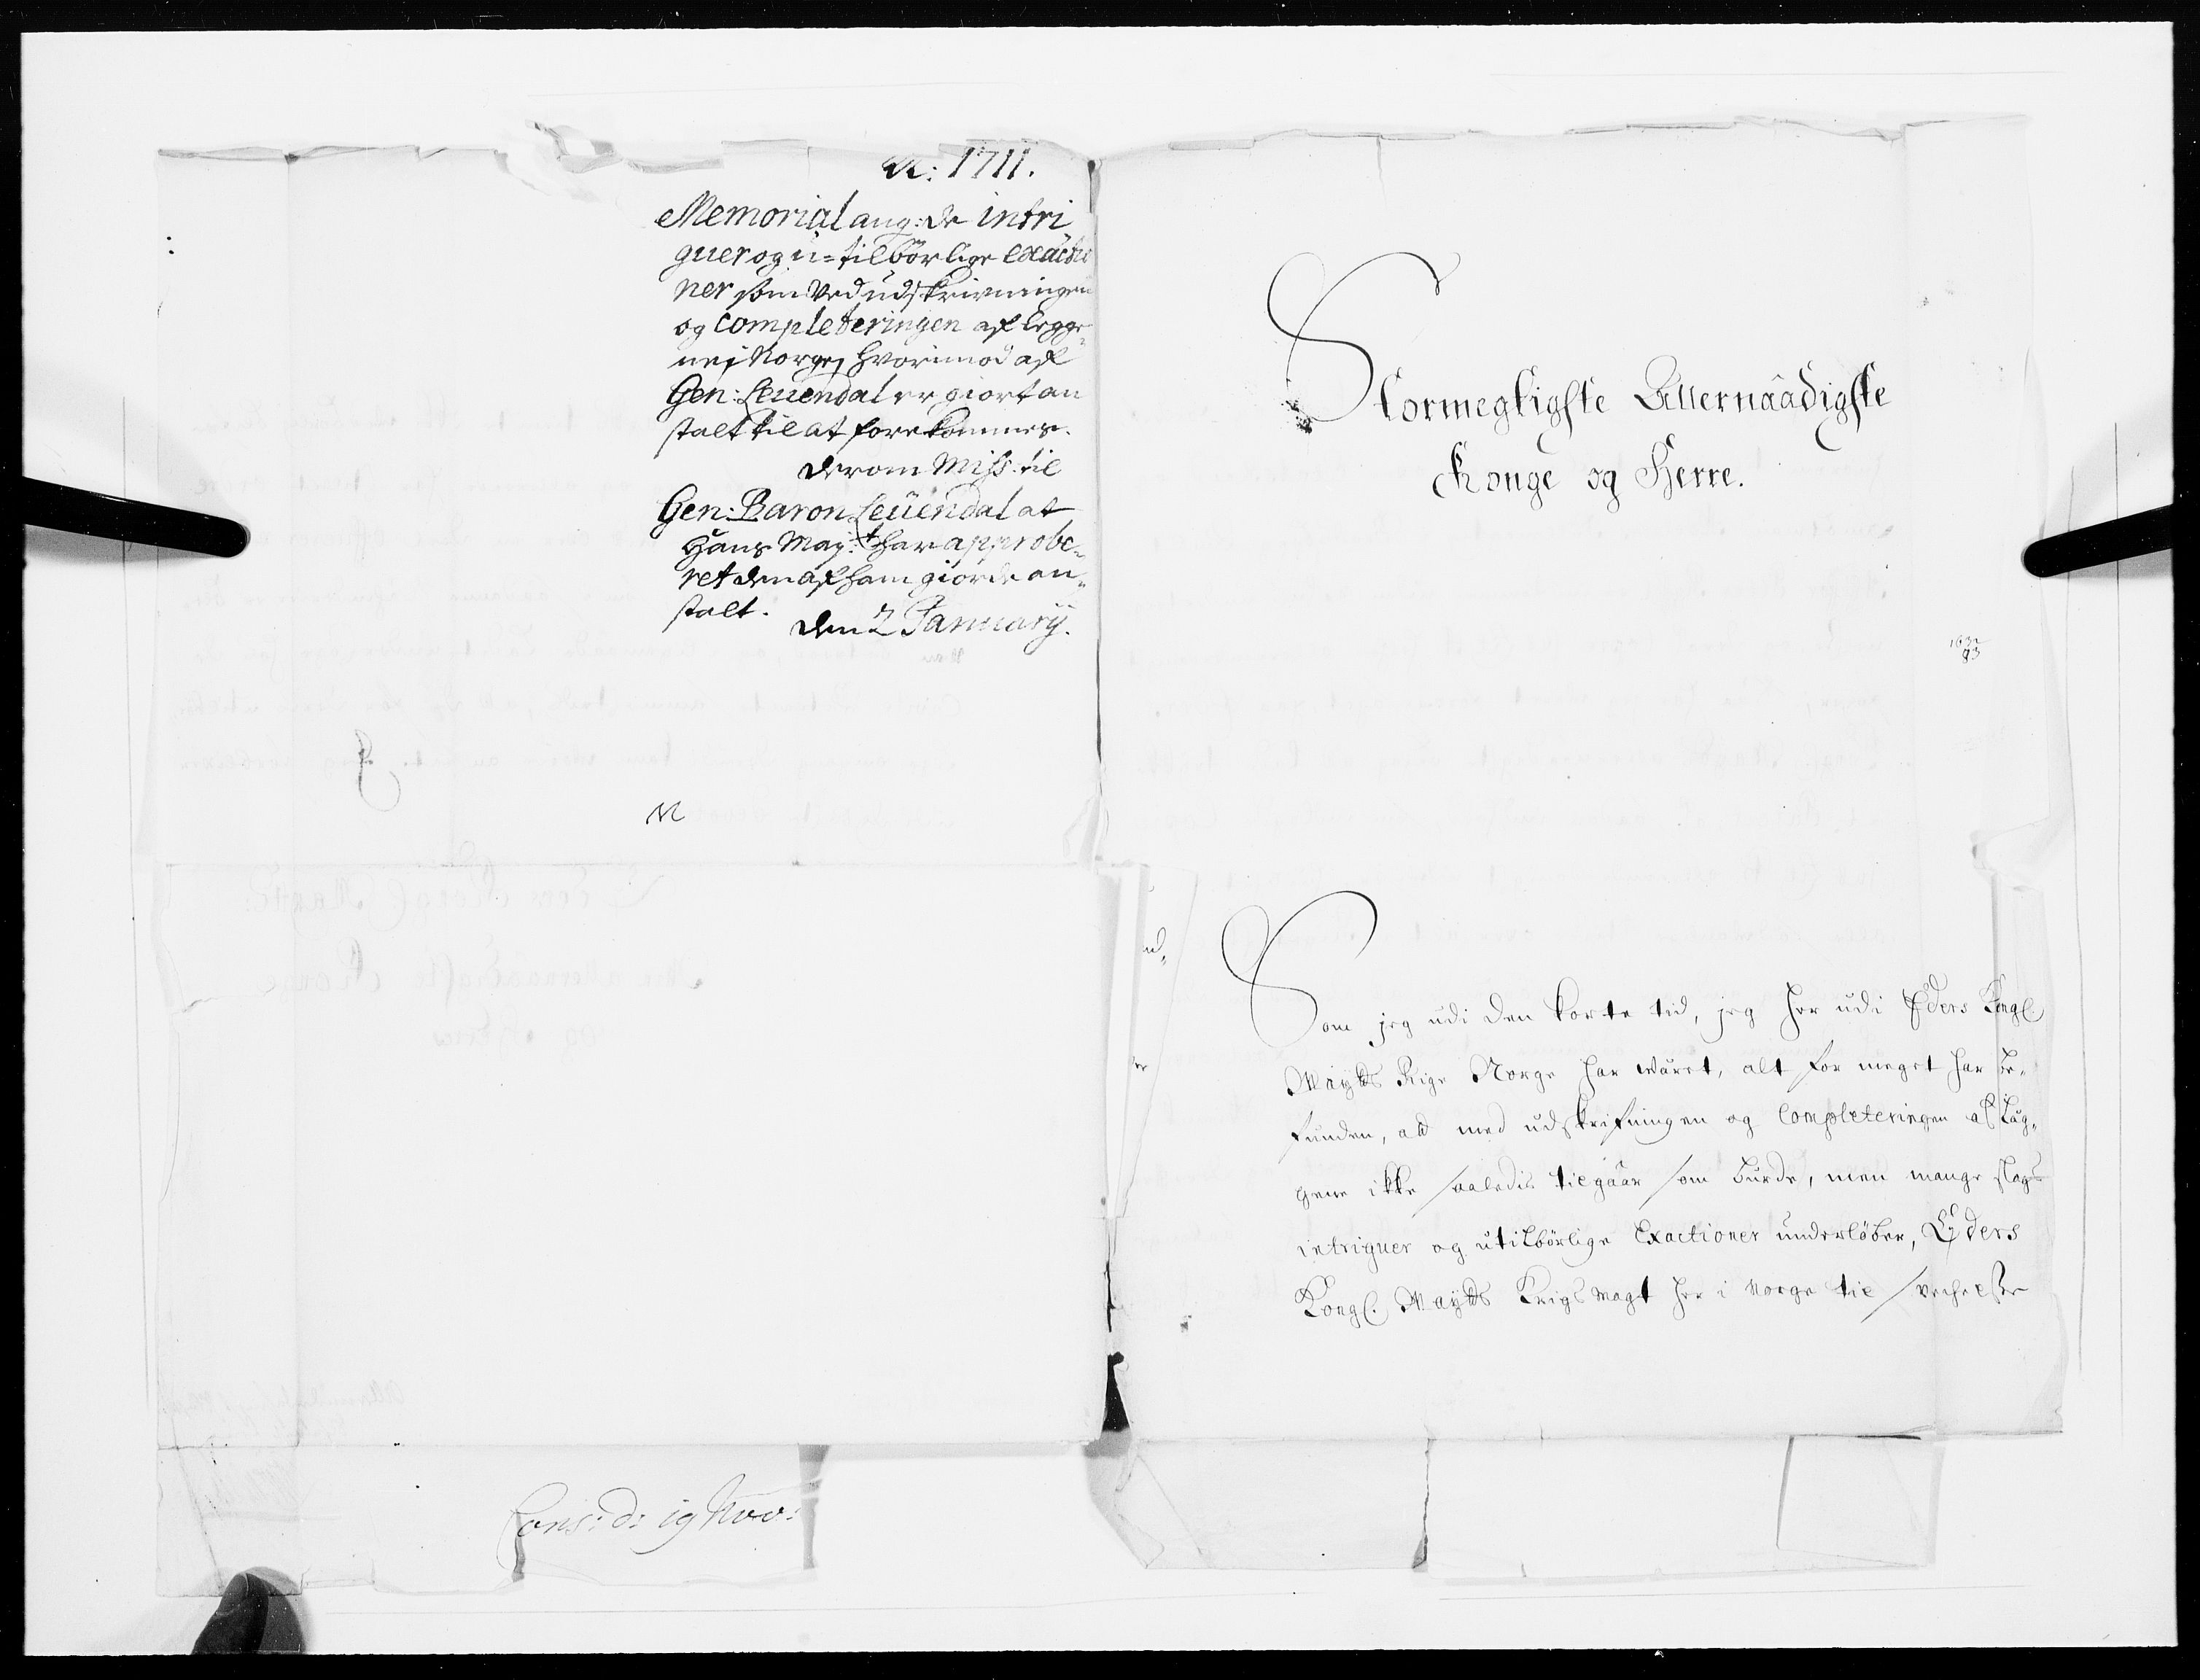 A: 1711.
Memorial ang: de intri
guer og u=tilbørlige exactio
ner som ved udskrivningen
og completeringen aff legge
ne i Norge, hvorimod aff
Gen: Leuendal er giort an
stalt til at forekomme.
Derom Miss: til
Gen: Baron Leuendal at
Hans May:t har approbe-
ret den aff ham giorde an-
stalt.
den 2 January.
Cons: d: 19 Nov:
Stormegtigste Allernaadigste
Konge og Herre.
Som jeg udi den korte tid, jeg her udi Eders Kongl.
Mayts Rige Norge har wäret, alt for meget har be-
funden, at med udskrifningen og Completeringen af Läg-
gene ikke saaledis tilgaar som burde, men mange slags
intriguer og utilbörlige Exactioner underlöber, Eders
Kongl. Mayts Krigsmagt her i Norge til svechelse